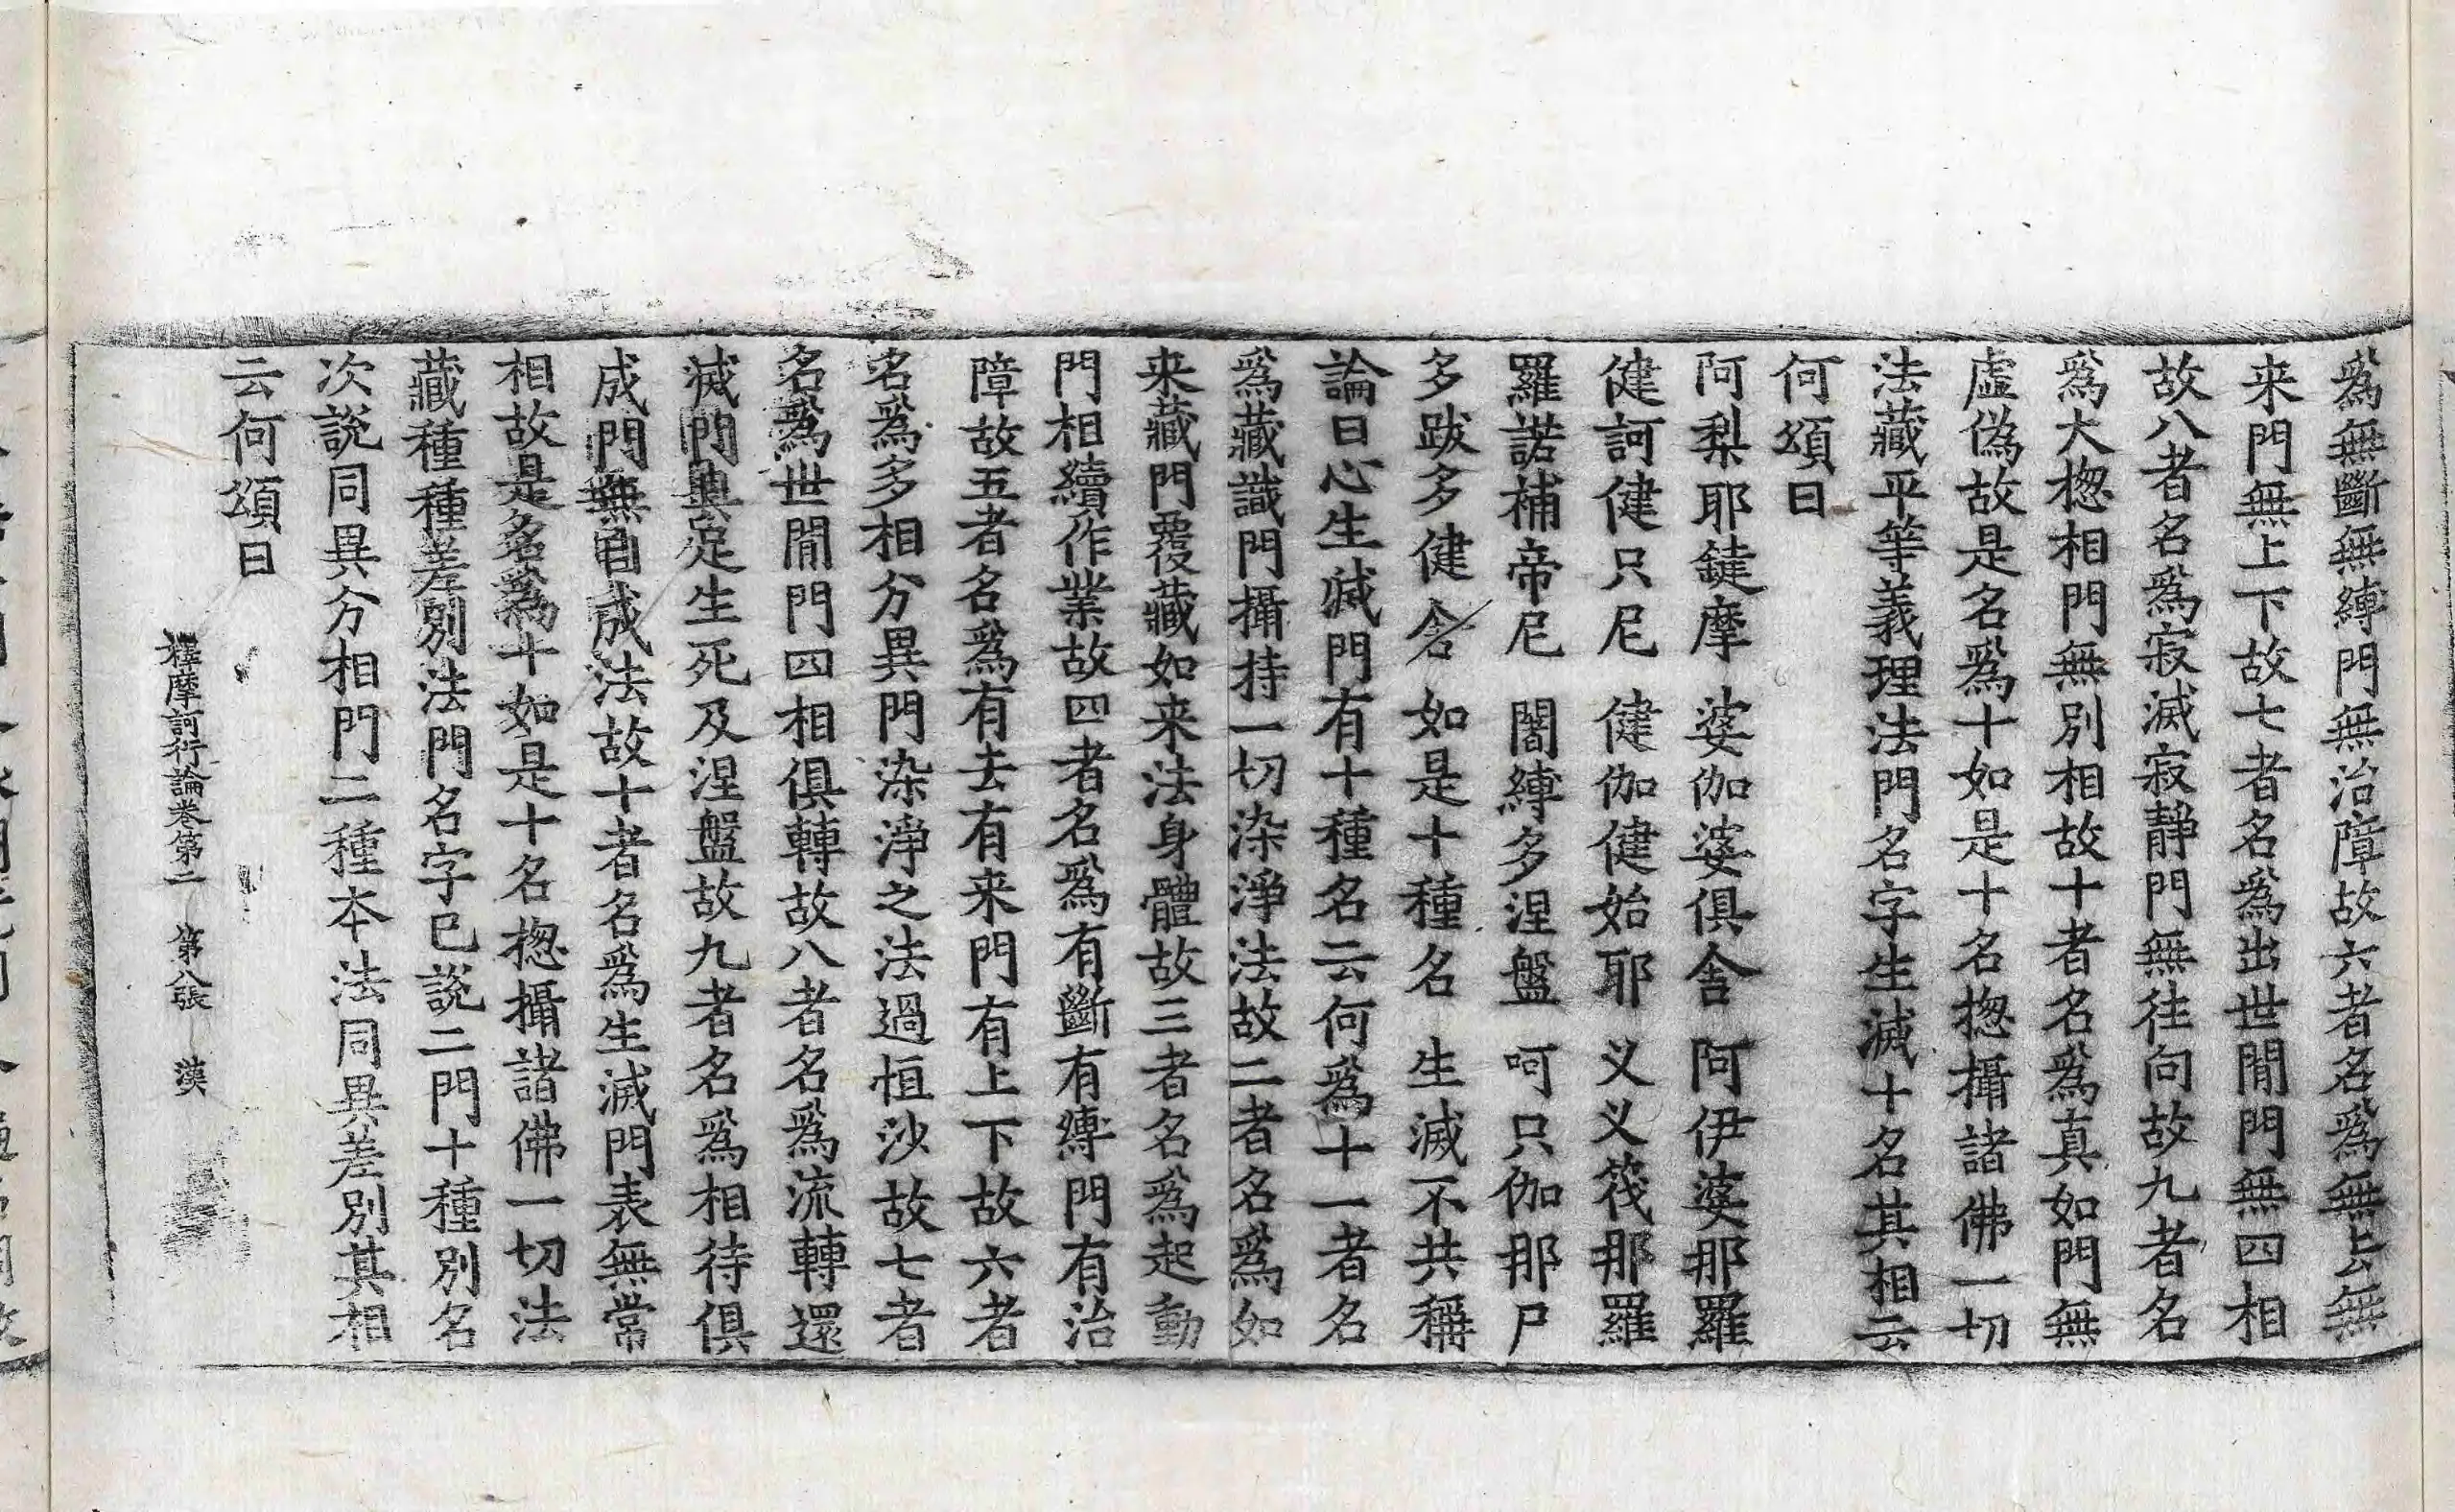 爲無斷無縛門無治障故六者名爲無去無
来門無上下故七者名爲出世閒門無四相
故八者名爲寂滅寂靜門無往向故九者名
爲大揔相門無別相故十者名爲真如門無
虛偽故是名爲十如是十名揔攝諸佛一切
法藏平等義理法門名字生滅十名其相云
何頌曰
阿梨耶鍵摩　婆伽婆俱舍　阿伊婆那羅
健訶健只尼　健伽健始耶　义义筏那羅
羅諾補帝尼　闍縛多涅盤　呵只伽那尸
多跋多健舍　如是十種名　生滅不共稱
論曰心生滅門有十種名云何爲十一者名
爲藏識門攝持一切染淨法故二者名爲如
来藏門覆藏如来法身體故三者名爲起動
門相續作業故四者名爲有斷有縛門有治
障故五者名爲有去有来門有上下故六者
名爲多相分異門染淨之法過恒沙故七者
名爲世閒門四相俱轉故八者名爲流轉還
滅門具足生死及涅盤故九者名爲相待俱
成門無自成法故十者名爲生滅門表無常
相故是名爲十如是十名揔攝諸佛一切法
藏種種差別法門名字已說二門十種別名
次說同異分相門二種本法同異差別其相
云何頌曰
釋摩訶衍論卷第二　第八張　漢